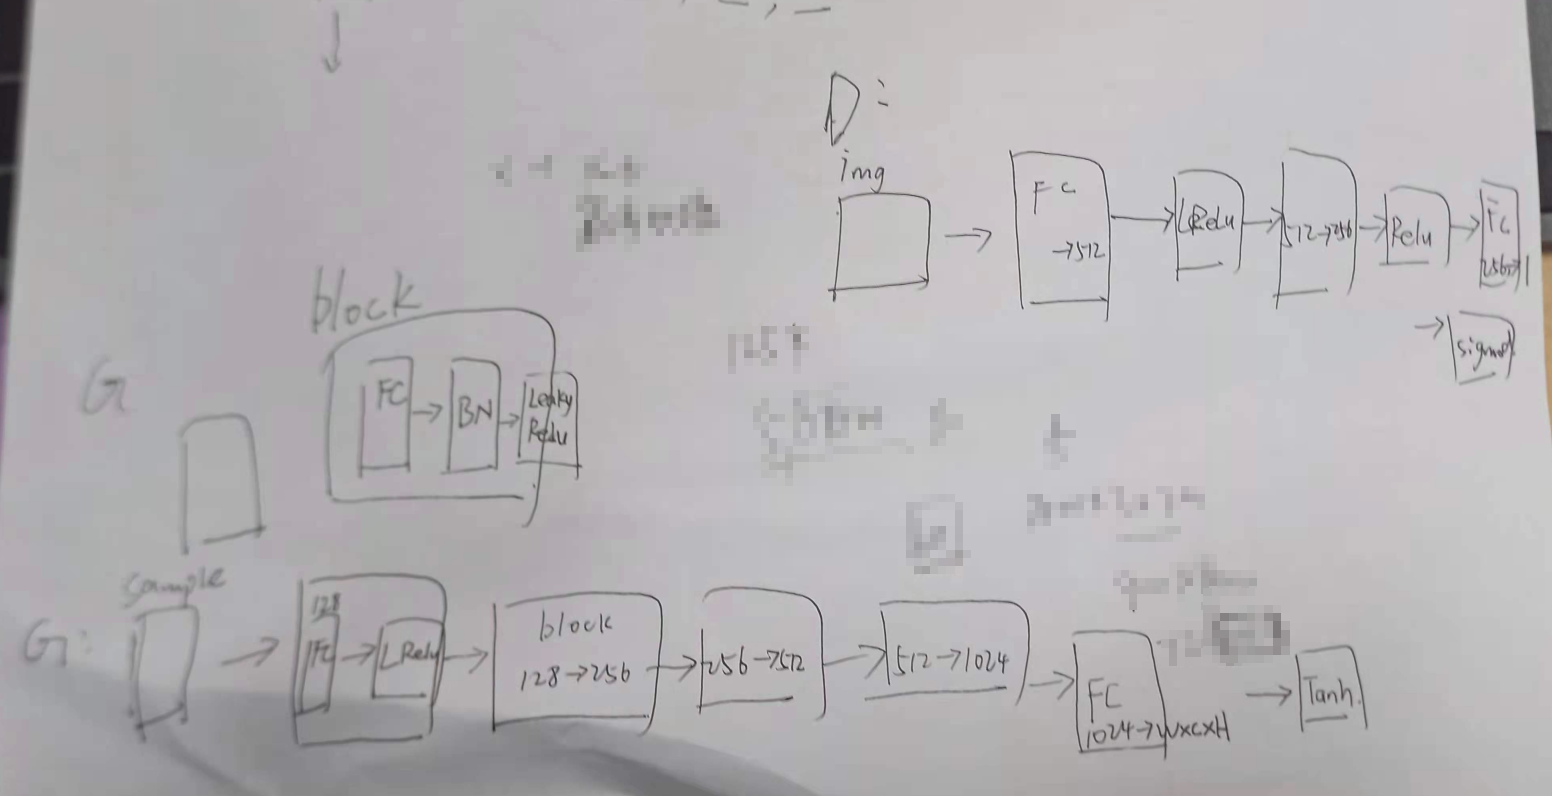 D:
img
FC
→512
→
LRelu
→
512→256
→
Relu
→
FC
256→1
→
sigmod
block
FC
→
BN
→
Leaky
Relu
G
sample
G:
→
128
FC
→
LRelu
→
block
128→256
→
256→512
→
512→1024
→
FC
1024→WxCxH
→
Tanh